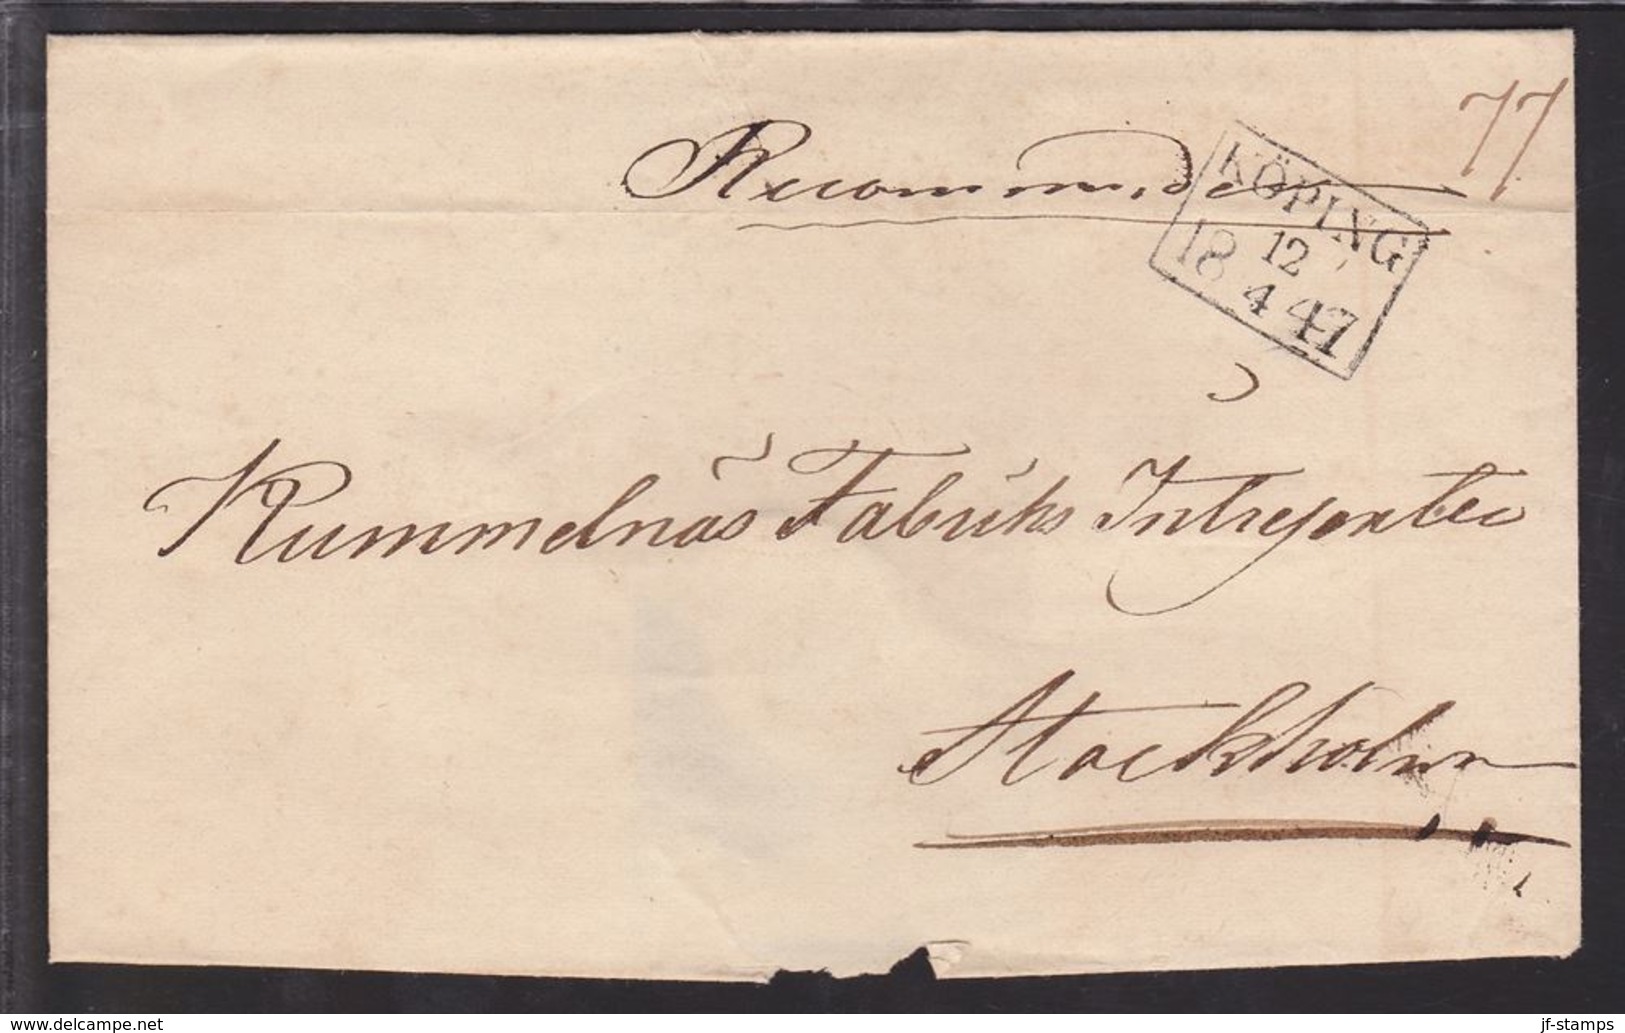 77
Recommenderas
KÖPING
12
18 4 47
Rummelnäs Fabriks Intressenter
Stockholm
www.delcampe.net
jf-stamps